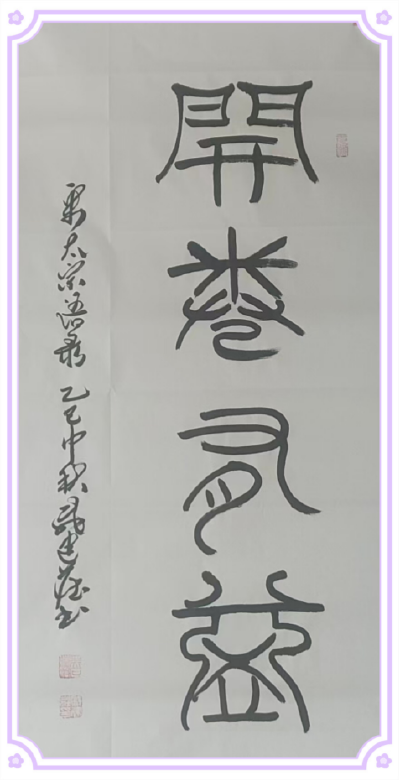 開卷有益
宋太宗語录 乙巳中秋 建 书